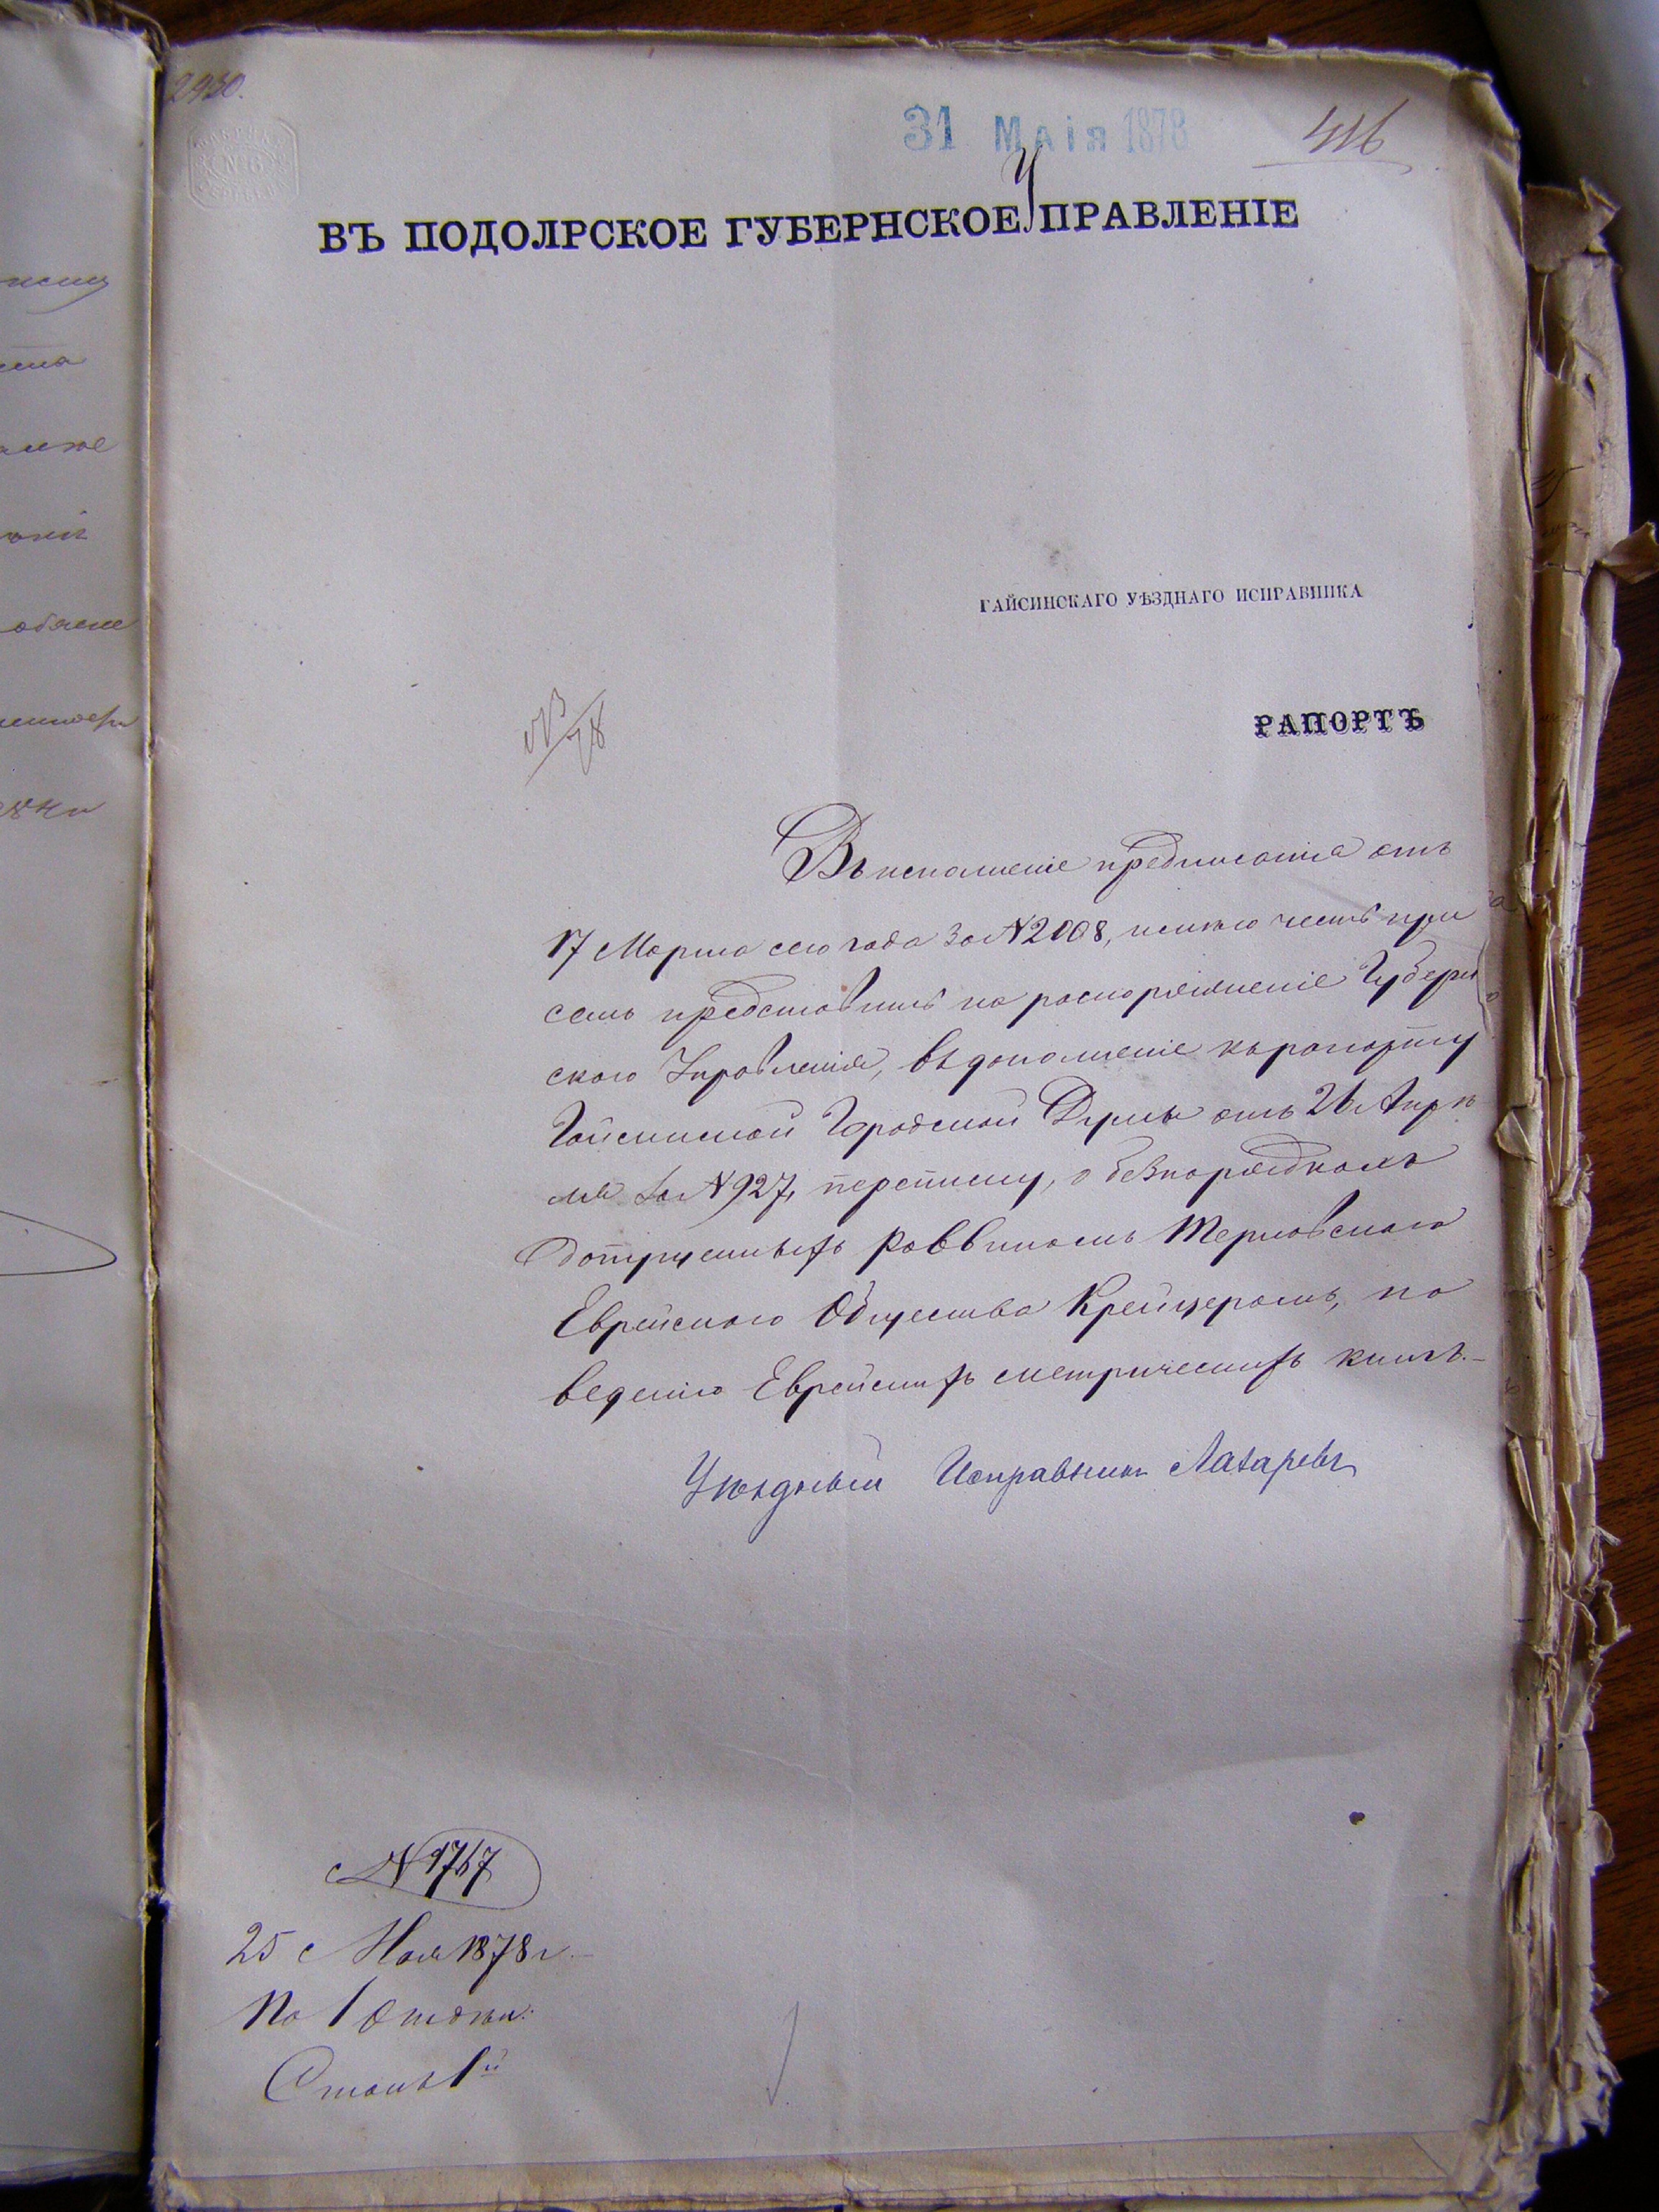 2930.
31 Маія 1878
416
№ 6
ВЪ ПОДОЛРСКОЕ ГУБЕРНСКОЕ УПРАВЛЕНІЕ
ГАЙСИНСКАГО УѢЗДНАГО ИСПРАВНИКА
РАПОРТЪ
Въ исполненіе предписанія отъ
17 Марта сего года за № 2008, имѣю честь при
семъ представить на распоряженіе Губерн
скаго Управленія, въ дополненіе къ рапорту
Гайсинской Городской Думы отъ 26 Апрѣ
ля за № 927, переписку, о безпорядкахъ
допущенныхъ Раввиномъ Терновскаго
Еврейскаго Общества Крейцеромъ, по
веденію Еврейскихъ метрическихъ книгъ.-
Уѣздный Исправникъ Лазаревъ
№ 1767
25 Мая 1878 г.
По 1 Отдѣл:
Столъ 1й